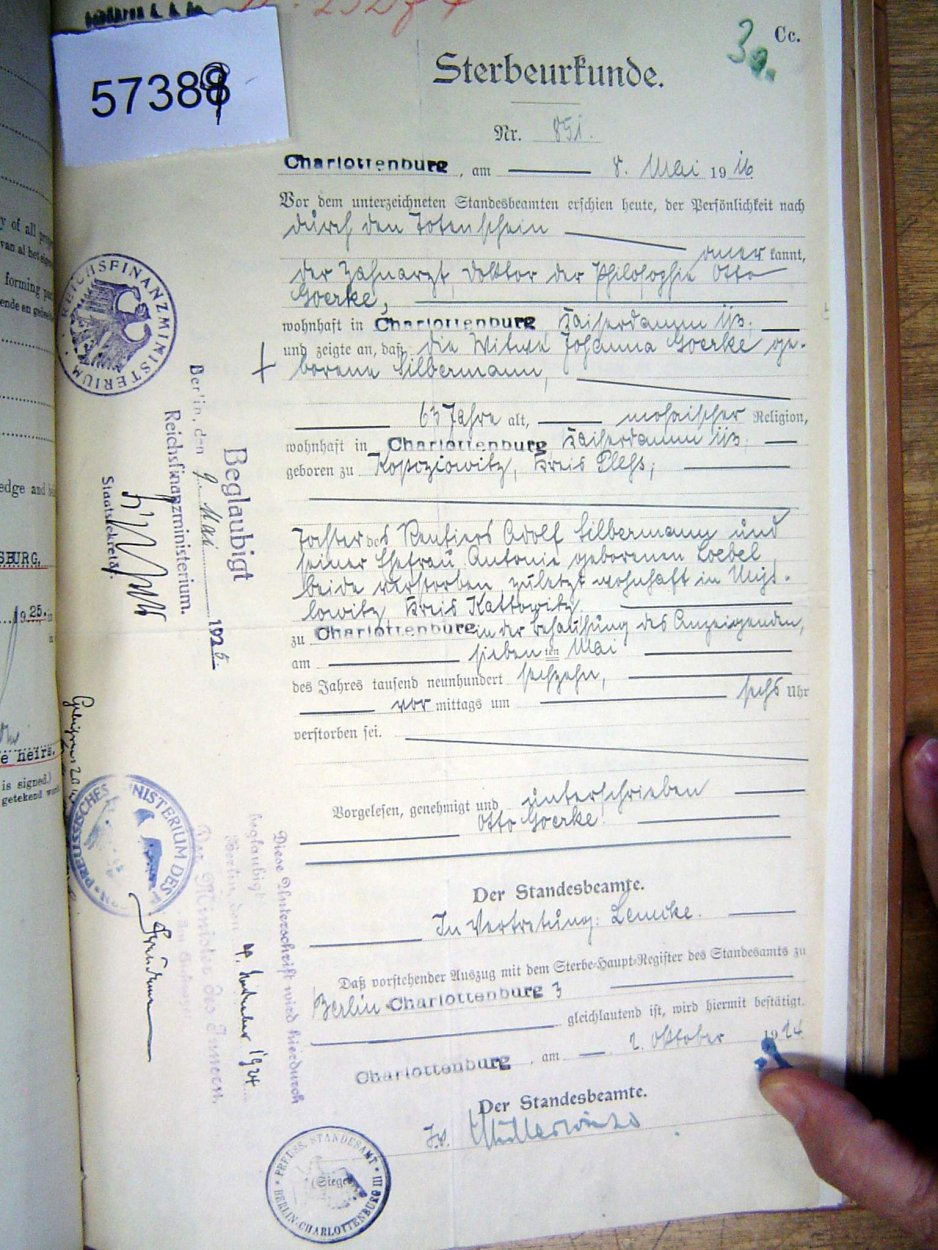 57389
3a.
Cc.
Sterbeurkunde.
Nr. 851.
Charlottenburg, am 8. Mai 1916
Vor dem unterzeichneten Standesbeamten erschien heute, der Persönlichkeit nach
durch den Totenschein
anerkannt,
der Zahnarzt, Doktor der Philosophie Otto
Goerke,
wohnhaft in Charlottenburg Kaiserdamm 113.
und zeigte an, daß die Witwe Johanna Goerke ge-
borene Silbermann,
63 Jahre alt, mosaischer Religion,
wohnhaft in Charlottenburg Kaiserdamm 113.
geboren zu Kopoziowitz, Kreis Pleß,
Tochter des Rentiers Adolf Silbermann und
seiner Ehefrau Antonie geborenen Loebel
beide verstorben zuletzt wohnhaft in Mys-
lowitz, Kreis Kattowitz
zu Charlottenburg in der Behausung des Anzeigenden,
am siebenten Mai
des Jahres tausend neunhundert sechzehn,
vormittags um sechs Uhr
verstorben sei.
Vorgelesen, genehmigt und unterschrieben
Otto Goerke.
Der Standesbeamte.
In Vertretung: Lemcke.
Daß vorstehender Auszug mit dem Sterbe-Haupt-Register des Standesamts zu
Berlin-Charlottenburg 3
gleichlautend ist, wird hiermit bestätigt.
Charlottenburg, am 2. Oktober 1924
Der Standesbeamte.
PREUSS. STANDESAMT III
(Siegel)
BERLIN-CHARLOTTENBURG
REICHSFINANZMINISTERIUM
Beglaubigt
Berlin, den 9. Mai 1925
Reichsfinanzministerium.
Staatssekretär.
PREUSSISCHES MINISTERIUM DES
Diese Unterschrift wird hierdurch
beglaubigt
Berlin, den 1924
Der Minister des Innern.
forming
edge and
SBURG.
1925.
e heirs.
is signed.)
getekend